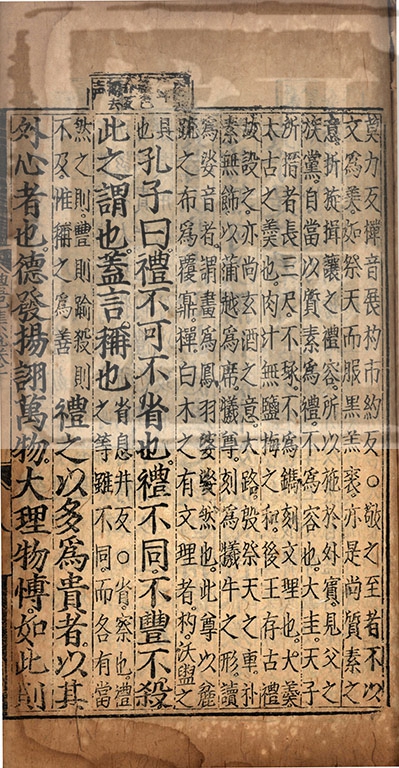 莫力反樿音展杓市約反○敬之至者不以
文為美如祭天而服黑羔裘亦是尚質素之
意折旋揖讓之禮容所以施於外賓見父之
族黨自當以質素為禮不為容也大圭天子
所搢者長三尺不琢不為鐫刻文理也大羹
太古之羹也肉汁無鹽梅之和後王存古禮
故設之亦尚玄酒之意大路殷祭天之車朴
素無飾以蒲越為席犧尊刻為犧牛之形讀
為娑音者謂畫為鳳羽婆娑然也此尊以麄
疏之布為覆鼏樿白木之有文理者杓沃盥之
具也孔子曰禮不可不省也禮不同不豐不殺
此之謂也蓋言稱也省息井反○省察也禮之等雖不同而各有當
然之則豐則踰殺則不及惟稱之為善禮之以多為貴者以其
外心者也德發揚詡萬物大理物博如此則